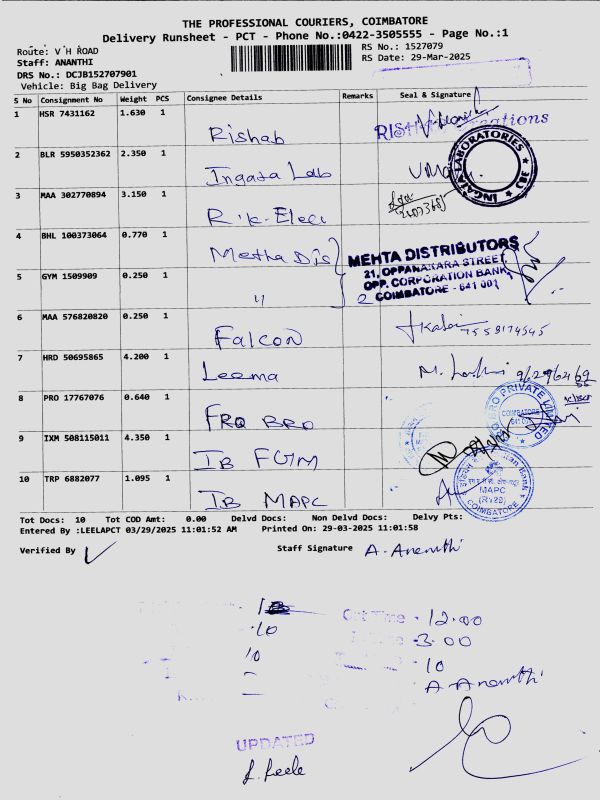 THE PROFESSIONAL COURIERS, COIMBATORE
Delivery Runsheet - PCT - Phone No.:0422-3505555 - Page No.:1
Route: V H ROAD
RS No.: 1527079
Staff: ANANTHI
RS Date: 29-Mar-2025
DRS No.: DCJB152707901
Vehicle: Big Bag Delivery
S No Consignment No Weight PCS Consignee Details Remarks Seal & Signature
1 HSR 7431162 1.630 1 Rishab
2 BLR 5950352362 2.350 1 Ingaza Lab
INGAZA LABORATORIES
3 MAA 302770894 3.150 1 R.K. Elec
4 BHL 100373064 0.770 1 Metha Dis
MEHTA DISTRIBUTORS
21, OPPANAKARA STREET,
OPP. CORPORATION BANK,
COIMBATORE - 641 001
5 GYM 1509909 0.250 1 "
2
6 MAA 576820820 0.250 1 Falcon
7 HRD 50695865 4.200 1 Leema
8 PRO 17767076 0.640 1 FRQ BRO
PRIVATE LIMITED
COIMBATORE
9 IXM 508115011 4.350 1 IB FGM
10 TRP 6882077 1.095 1 IB MAPC
Indian Bank
MAPC
COIMBATORE
Tot Docs: 10 Tot COD Amt: 0.00 Delvd Docs: Non Delvd Docs: Delvy Pts:
Entered By :LEELAPCT 03/29/2025 11:01:52 AM Printed On: 29-03-2025 11:01:58
Verified By
Staff Signature A. Ananthi
Out Time - 12.00
10 - 3.00
10 - 10
A. Ananthi
UPDATED